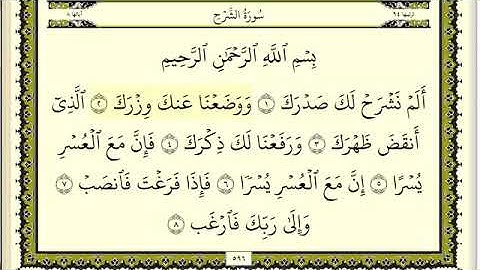 ترتيبها ٩٤ سُورَةُ الشَّرْحِ آياتها ٨
بِسْمِ اللَّهِ الرَّحْمَٰنِ الرَّحِيمِ
أَلَمْ نَشْرَحْ لَكَ صَدْرَكَ ١ وَوَضَعْنَا عَنكَ وِزْرَكَ ٢ الَّذِىٓ
أَنقَضَ ظَهْرَكَ ٣ وَرَفَعْنَا لَكَ ذِكْرَكَ ٤ فَإِنَّ مَعَ الْعُسْرِ
يُسْرًا ٥ إِنَّ مَعَ الْعُسْرِ يُسْرًا ٦ فَإِذَا فَرَغْتَ فَانصَبْ ٧
وَإِلَىٰ رَبِّكَ فَارْغَب ٨
٥٩٦